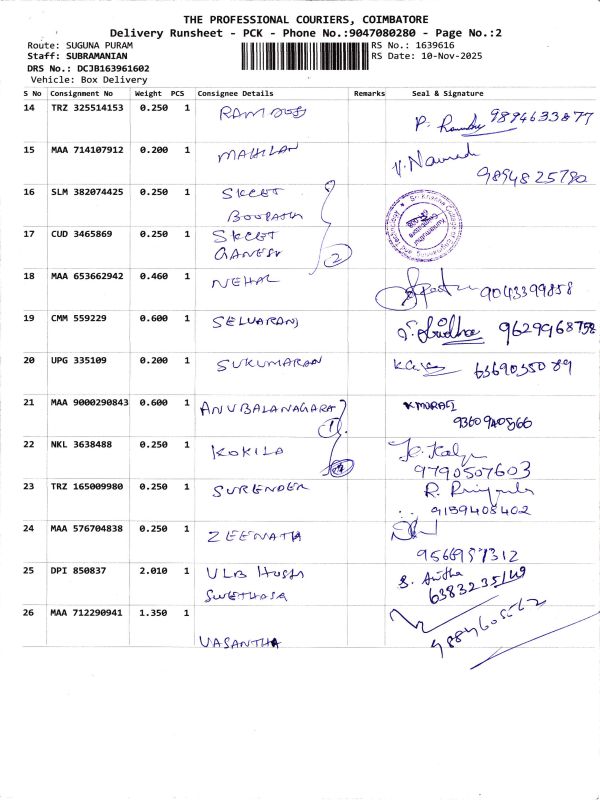 THE PROFESSIONAL COURIERS, COIMBATORE
Delivery Runsheet - PCK - Phone No.:9047080280 - Page No.:2
Route: SUGUNA PURAM RS No.: 1639616
Staff: SUBRAMANIAN RS Date: 10-Nov-2025
DRS No.: DCJB163961602
Vehicle: Box Delivery
S No Consignment No Weight PCS Consignee Details Remarks Seal & Signature
14 TRZ 325514153 0.250 1 RAMDOSS P. 9894633877
15 MAA 714107912 0.200 1 MAHILAN 9894825780
16 SLM 382074425 0.250 1 SKCET
BOOPATHI
17 CUD 3465869 0.250 1 SKCET
GANESH 2
18 MAA 653662942 0.460 1 NEHAL 9043399858
19 CMM 559229 0.600 1 SELVARANJ 9629968758
20 UPG 335109 0.200 1 SUKUMARAN 6369035089
21 MAA 9000290843 0.600 1 ANUBALANAGARA K MURALI
1 9360940866
22 NKL 3638488 0.250 1 KOKILA
9790507603
23 TRZ 165009980 0.250 1 SURENDER R.
9159408402
24 MAA 576704838 0.250 1 ZEENATH
9566957312
25 DPI 850837 2.010 1 VLB HOSTEL S. Anitha
SWETHASA 6383235149
26 MAA 712290941 1.350 1
VASANTHA